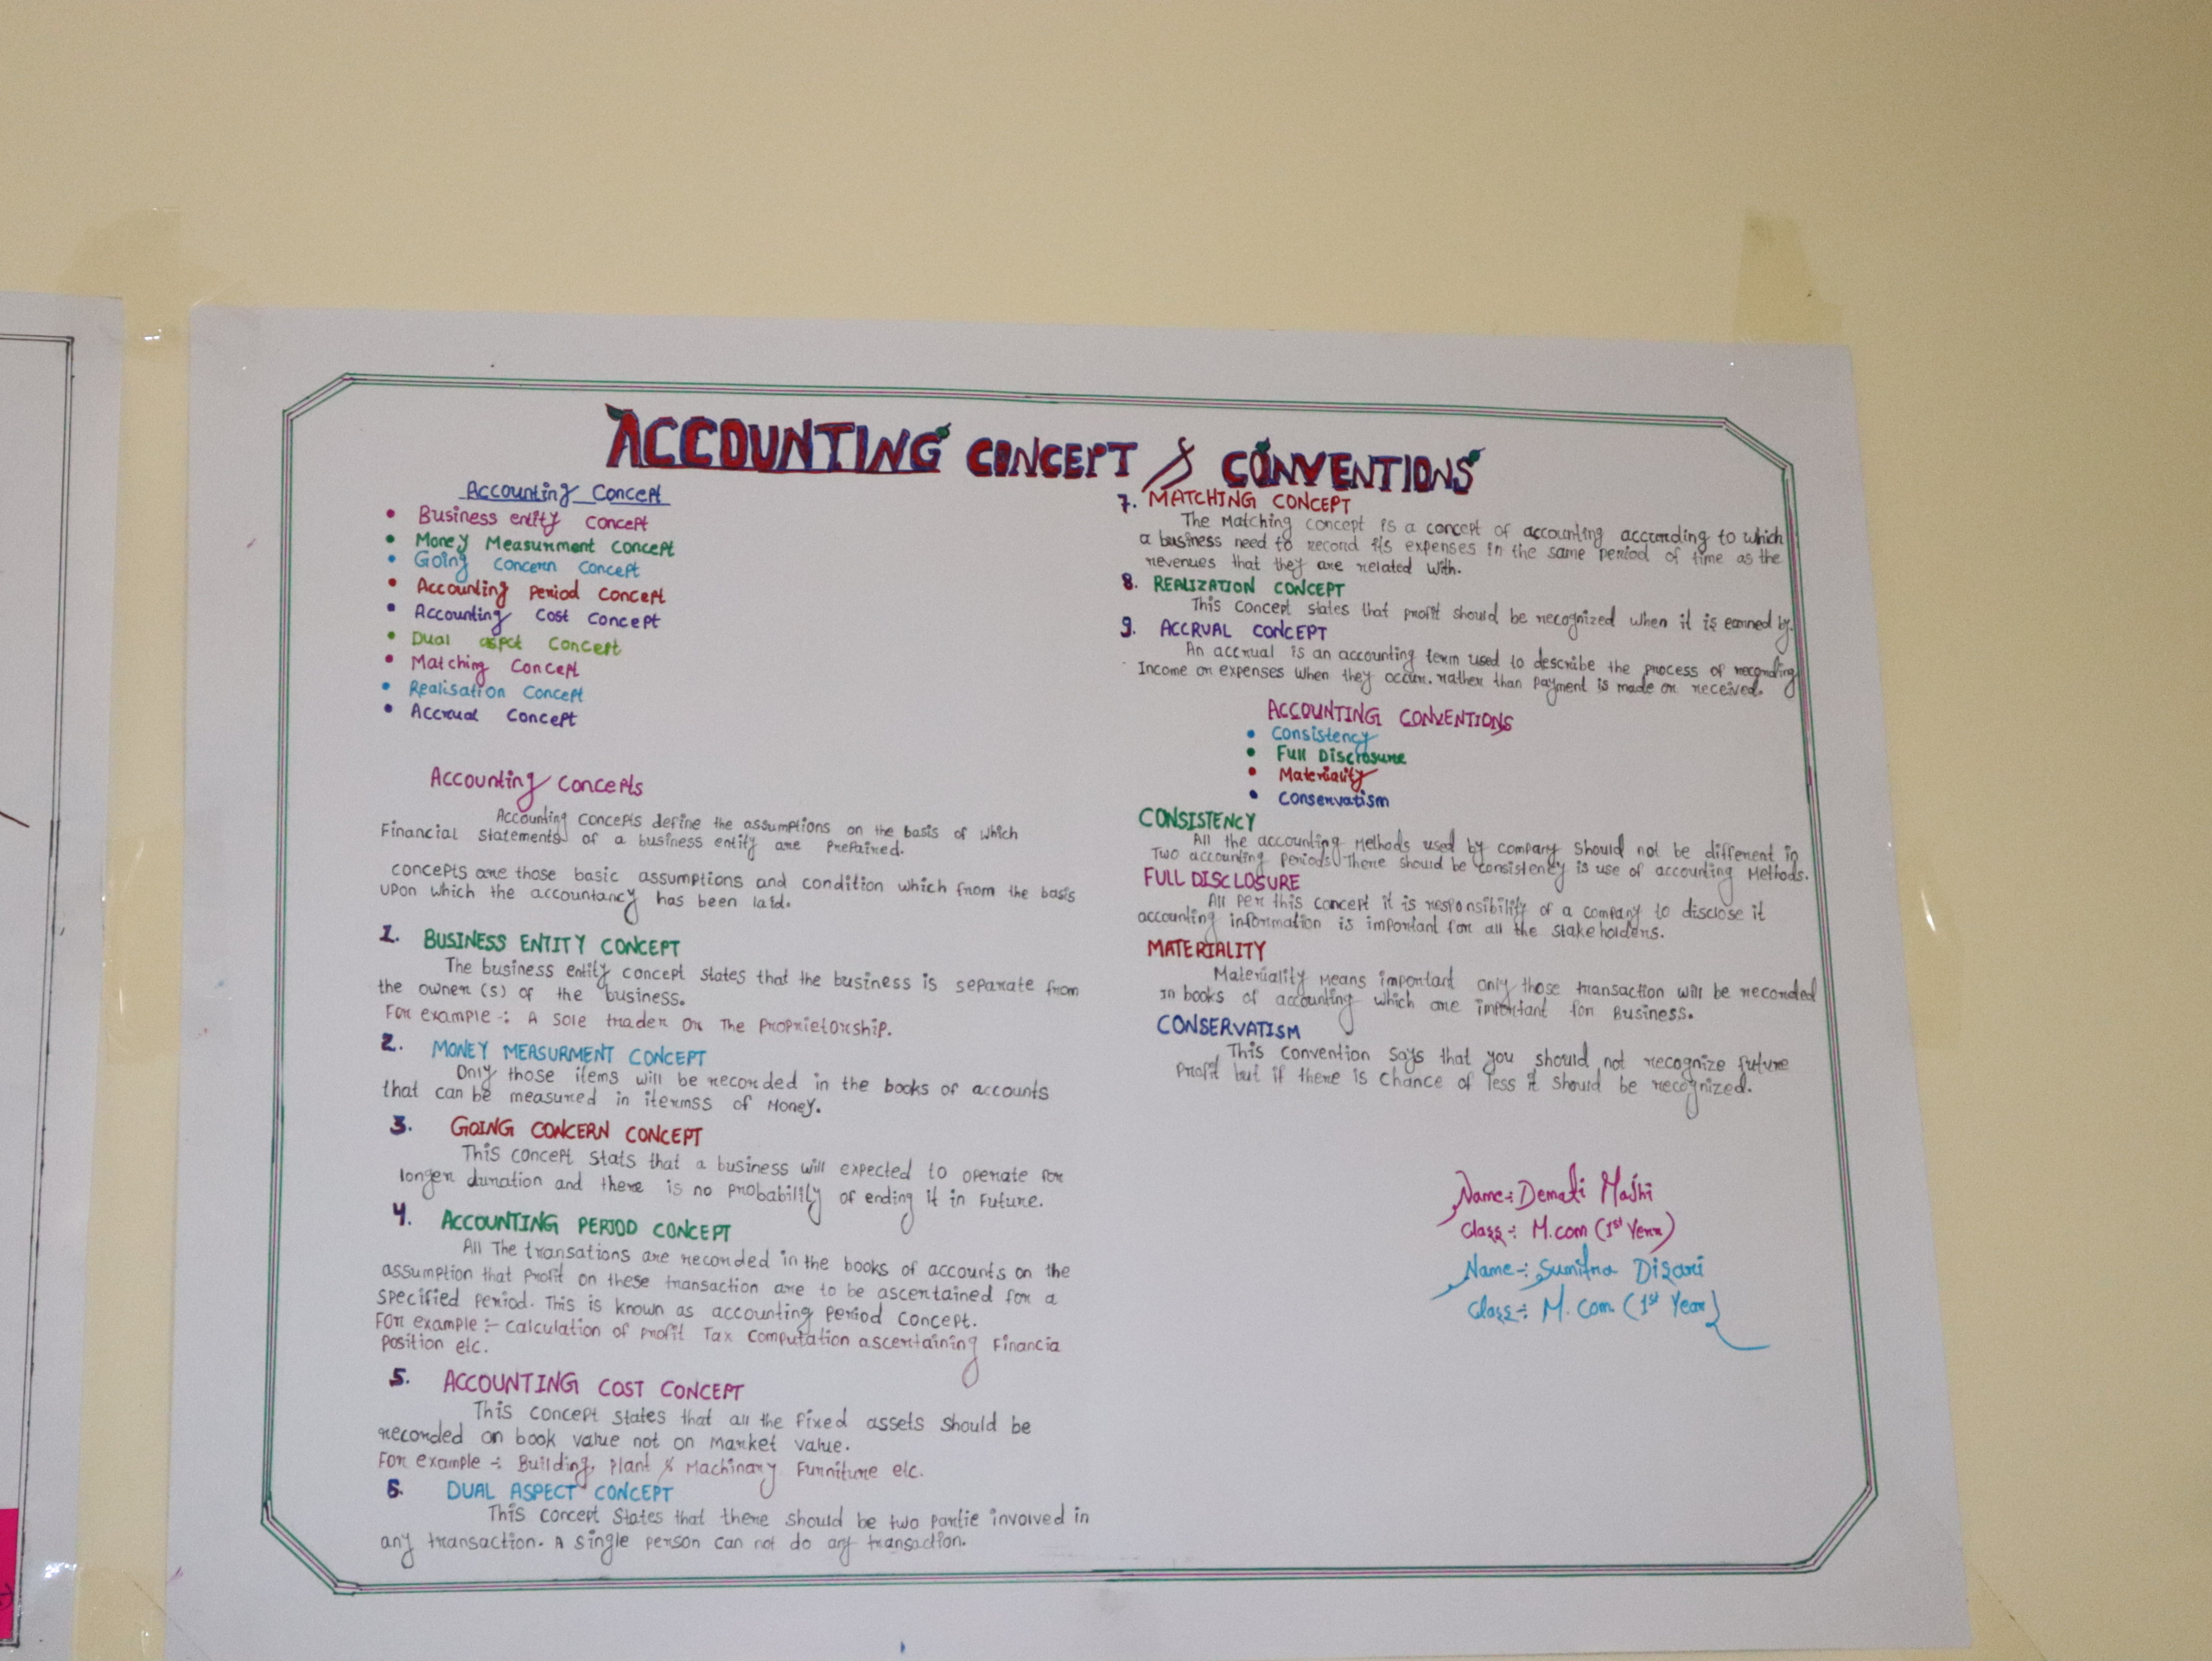 ACCOUNTING CONCEPT & CONVENTIONS
Accounting Concept
• Business entity concept
• Money Measurment concept
• Going concern concept
• Accounting period concept
• Accounting cost concept
• Dual aspct concept
• Matching concept
• Realisation concept
• Accrual concept
Accounting concepts
Accounting concepts define the assumptions on the basis of which
Financial statements of a business entity are Prepaired.
concepts are those basic assumptions and condition which from the basis
upon which the accountancy has been laid.
1. BUSINESS ENTITY CONCEPT
The business entity concept states that the business is separate from
the owner (s) of the business.
For example :- A sole trader or The Proprietorship.
2. MONEY MEASURMENT CONCEPT
Only those items will be recorded in the books of accounts
that can be measured in itermss of Money.
3. GOING CONCERN CONCEPT
This concept stats that a business will expected to operate for
longer duration and there is no probability of ending it in future.
4. ACCOUNTING PERIOD CONCEPT
All The transations are recorded in the books of accounts on the
assumption that profit on these transaction are to be ascertained for a
specified period. This is known as accounting period concept.
For example :- calculation of profit Tax computation ascertaining Financia
position etc.
5. ACCOUNTING COST CONCEPT
This concept states that all the fixed assets should be
recorded on book value not on market value.
For example :- Building, Plant & Machinary Furniture etc.
6. DUAL ASPECT CONCEPT
This concept states that there should be two partie involved in
any transaction. A single person can not do any transaction.
7. MATCHING CONCEPT
The Matching concept is a concept of accounting according to which
a business need to record its expenses in the same period of time as the
revenues that they are related with.
8. REALIZATION CONCEPT
This concept states that profit should be recognized when it is earned by.
9. ACCRUAL CONCEPT
An accrual is an accounting term used to describe the process of recording
Income or expenses when they occur. rather than payment is made or received.
ACCOUNTING CONVENTIONS
• Consistency
• Full Disclosure
• Materiality
• Conservatism
CONSISTENCY
All the accounting Methods used by company should not be different in
Two accounting periods There should be consistency is use of accounting Methods.
FULL DISCLOSURE
All per this concept it is responsibility of a company to disclose it
accounting information is important for all the stakeholders.
MATERIALITY
Materiality means important only those transaction will be recorded
in books of accounting which are important for Business.
CONSERVATISM
This convention says that you should not recognize future
profit but if there is chance of less it should be recognized.
Name:- Demati Majhi
Class:- M.com (1st Year)
Name:- Sumitra Disari
Class:- M. Com (1st Year)